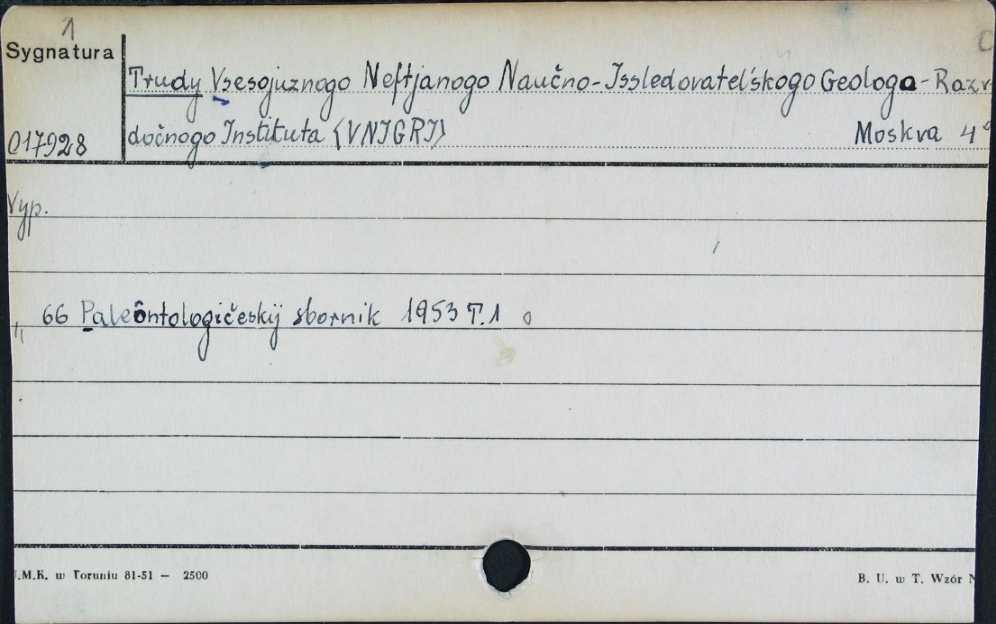 1
Sygnatura
Trudy Vsesojuznogo Neftjanogo Naučno-Issledovatel'skogo Geologo-Razv
017928
dočnogo Instituta (VNIGRI) Moskva 4°
Vyp.
" 66 Paleontologičeskij sbornik 1953 T.1
.M.K. w Toruniu 81-51 — 2500
B. U. w T. Wzór N